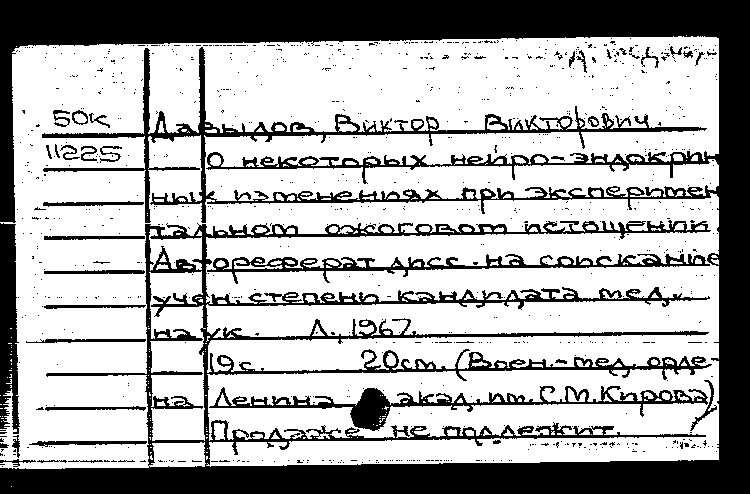 50к
Давыдов, Виктор Викторович.
11225
О некоторых нейро-эндокрин
ных изменениях при эксперимен
тальном ожоговом истощении.
Автореферат дисс. на соискание
учен. степени кандидата мед.
наук. Л., 1967.
19с. 20см. (Воен.-мед. орде-
на Ленина акад. им. С.М.Кирова)
Продаже не подлежит.